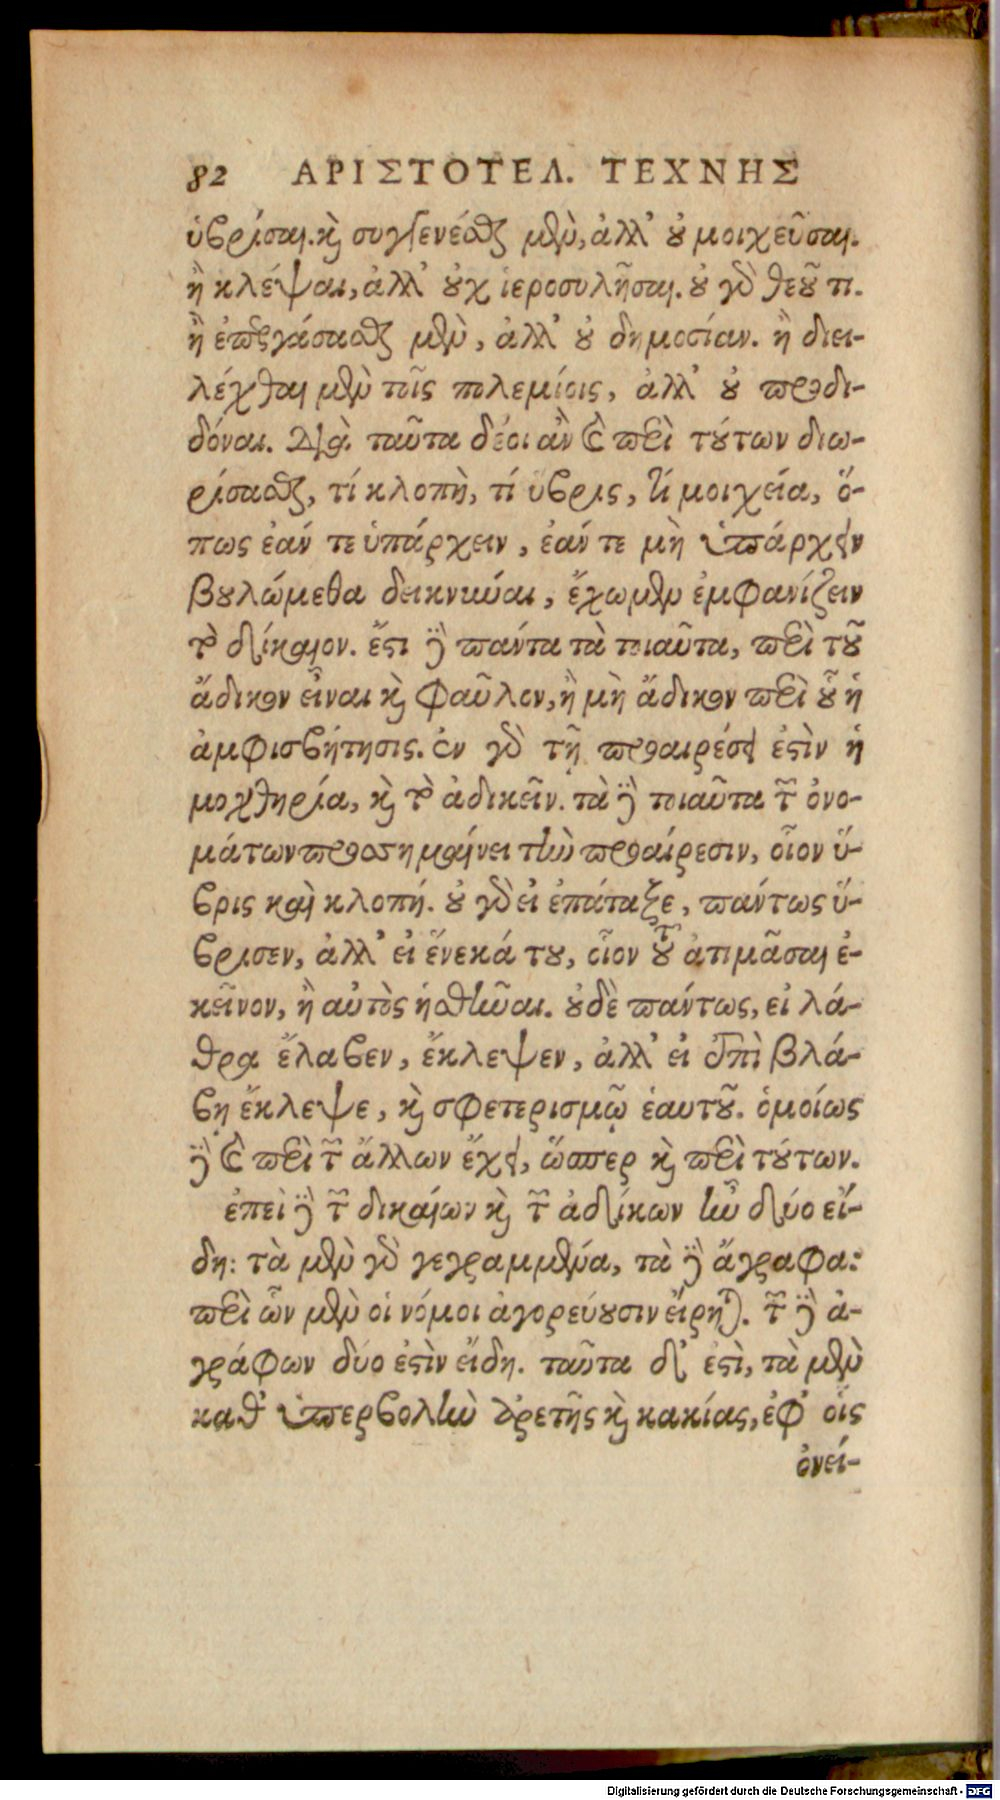 82 ΑΡΙΣΤΟΤΕΛ. ΤΕΧΝΗΣ
ὑβρίσαι. καὶ συγγενέσθαι μὲν, ἀλλ' οὐ μοιχεῦσαι.
ἢ κλέψαι, ἀλλ' οὐχ ἱεροσυλῆσαι. οὐ γὰρ θεοῦ τι.
ἢ ἐπεργάσασθαι μὲν, ἀλλ' οὐ δημοσίαν. ἢ διει-
λέχθαι μὲν τοῖς πολεμίοις, ἀλλ' οὐ προδι-
δόναι. Διὰ ταῦτα δέοι ἂν καὶ περὶ τούτων διω-
ρίσασθαι, τί κλοπὴ, τί ὕβρις, τί μοιχεία, ὅ-
πως ἐάν τε ὑπάρχειν, ἐάν τε μὴ ὑπάρχειν
βουλώμεθα δεικνύναι, ἔχωμεν ἐμφανίζειν
τὸ δίκαιον. ἔστι δὲ πάντα τὰ τοιαῦτα, περὶ τοῦ
ἄδικον εἶναι καὶ φαῦλον, ἢ μὴ ἄδικον περὶ οὗ ἡ
ἀμφισβήτησις. ἐν γὰρ τῇ προαιρέσει ἐστὶν ἡ
μοχθηρία, καὶ τὸ ἀδικεῖν. τὰ δὲ τοιαῦτα τῶν ὀνο-
μάτων προσσημαίνει τὴν προαίρεσιν, οἷον ὕ-
βρις καὶ κλοπή. οὐ γὰρ εἰ ἐπάταξε, πάντως ὕ-
βρισεν, ἀλλ' εἰ ἕνεκά του, οἷον τοῦ ἀτιμᾶσαι ἐ-
κεῖνον, ἢ αὐτὸς ἡσθῆναι. οὐδὲ πάντως, εἰ λά-
θρα ἔλαβεν, ἔκλεψεν, ἀλλ' εἰ ἐπὶ βλά-
βῃ ἔκλεψε, καὶ σφετερισμῷ ἑαυτοῦ. ὁμοίως
δὲ καὶ περὶ τῶν ἄλλων ἔχει, ὥσπερ καὶ περὶ τούτων.
ἐπεὶ δὲ τῶν δικαίων καὶ τῶν ἀδίκων ἦν δύο εἴ-
δη: τὰ μὲν γὰρ γεγραμμένα, τὰ δὲ ἄγραφα:
περὶ ὧν μὲν οἱ νόμοι ἀγορεύουσιν εἴρηται. τῶν δὲ ἀ-
γράφων δύο ἐστὶν εἴδη. ταῦτα δ' ἐστὶ, τὰ μὲν
καθ' ὑπερβολὴν ἀρετῆς καὶ κακίας, ἐφ' οἷς
ὀνεί-
Digitalisierung gefördert durch die Deutsche Forschungsgemeinschaft - DFG